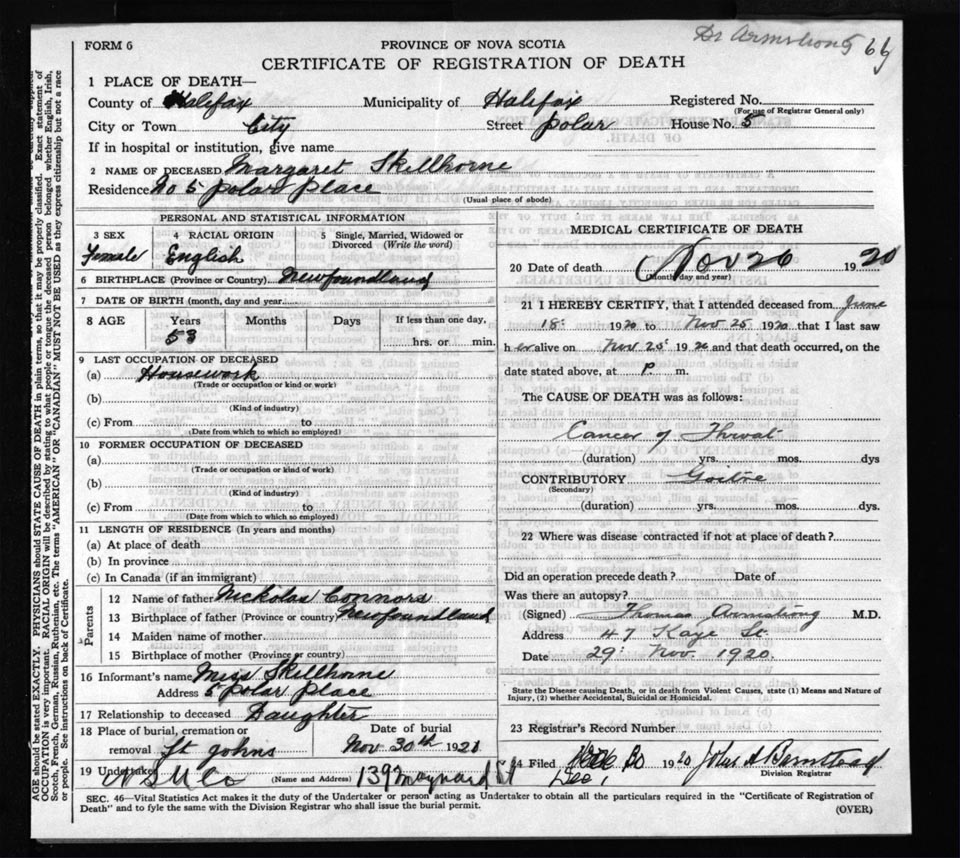 Dr Armstrong 66
FORM 6
PROVINCE OF NOVA SCOTIA
CERTIFICATE OF REGISTRATION OF DEATH
1 PLACE OF DEATH—
County of Halifax Municipality of Halifax Registered No.
(For use of Registrar General only)
City or Town City Street Polar House No. 5
If in hospital or institution, give name
2 NAME OF DECEASED Margaret Skillhorne
Residence No 5 Polar Place
(Usual place of abode)
PERSONAL AND STATISTICAL INFORMATION
3 SEX 4 RACIAL ORIGIN 5 Single, Married, Widowed or Divorced (Write the word)
Female English
6 BIRTHPLACE (Province or Country) Newfoundland
7 DATE OF BIRTH (month, day and year)
8 AGE Years Months Days If less than one day,
53 hrs. or min.
9 LAST OCCUPATION OF DECEASED
(a) Housework
(Trade or occupation or kind or work)
(b)
(Kind of industry)
(c) From to
(Date from which to which so employed)
10 FORMER OCCUPATION OF DECEASED
(a)
(Trade or occupation or kind of work)
(b)
(Kind of industry)
(c) From to
(Date from which to which so employed)
11 LENGTH OF RESIDENCE (In years and months)
(a) At place of death
(b) In province
(c) In Canada (if an immigrant)
Parents
12 Name of father Nickolas Connors
13 Birthplace of father (Province or country) Newfoundland
14 Maiden name of mother
15 Birthplace of mother (Province or country)
16 Informant's name Miss Skillhorne
Address 5 Polar Place
17 Relationship to deceased Daughter
18 Place of burial, cremation or Date of burial
removal St Johns Nov. 30th 1921
19 Undertaker N S U Co (Name and Address) 139 Maynard St
MEDICAL CERTIFICATE OF DEATH
20 Date of death Nov 26 1920
(Month, day and year)
21 I HEREBY CERTIFY, that I attended deceased from June
18: 1920 to Nov 25 1920 that I last saw
her alive on Nov 25 1920 and that death occurred, on the
date stated above, at P. m.
The CAUSE OF DEATH was as follows:
Cancer of Throat
(duration) yrs. mos. dys
CONTRIBUTORY Goitre
(Secondary)
(duration) yrs. mos. dys.
22 Where was disease contracted if not at place of death?
Did an operation precede death? Date of
Was there an autopsy?
(Signed) Thomas Armstrong M.D.
Address 47 Kaye St.
Date 29: Nov. 1920.
State the Disease causing Death, or in death from Violent Causes, state (1) Means and Nature of
Injury, (2) whether Accidental, Suicidal or Homicidal.
23 Registrar's Record Number
24 Filed Dec 1 1920
Division Registrar
SEC. 46—Vital Statistics Act makes it the duty of the Undertaker or person acting as Undertaker to obtain all the particulars required in the "Certificate of Registration of
Death" and to fyle the same with the Division Registrar who shall issue the burial permit.
(OVER)
AGE should be stated EXACTLY. PHYSICIANS should STATE CAUSE OF DEATH in plain terms, so that it may be properly classified. Exact statement of
OCCUPATION is very important. RACIAL ORIGIN will be described by stating to what people or tongue the deceased person belonged whether English, Irish,
Scotch, French, German, Russian, Ruthenian, etc. The terms "AMERICAN" OR "CANADIAN" MUST NOT BE USED as they express citizenship but not a race
or people. See instructions on back of Certificate.